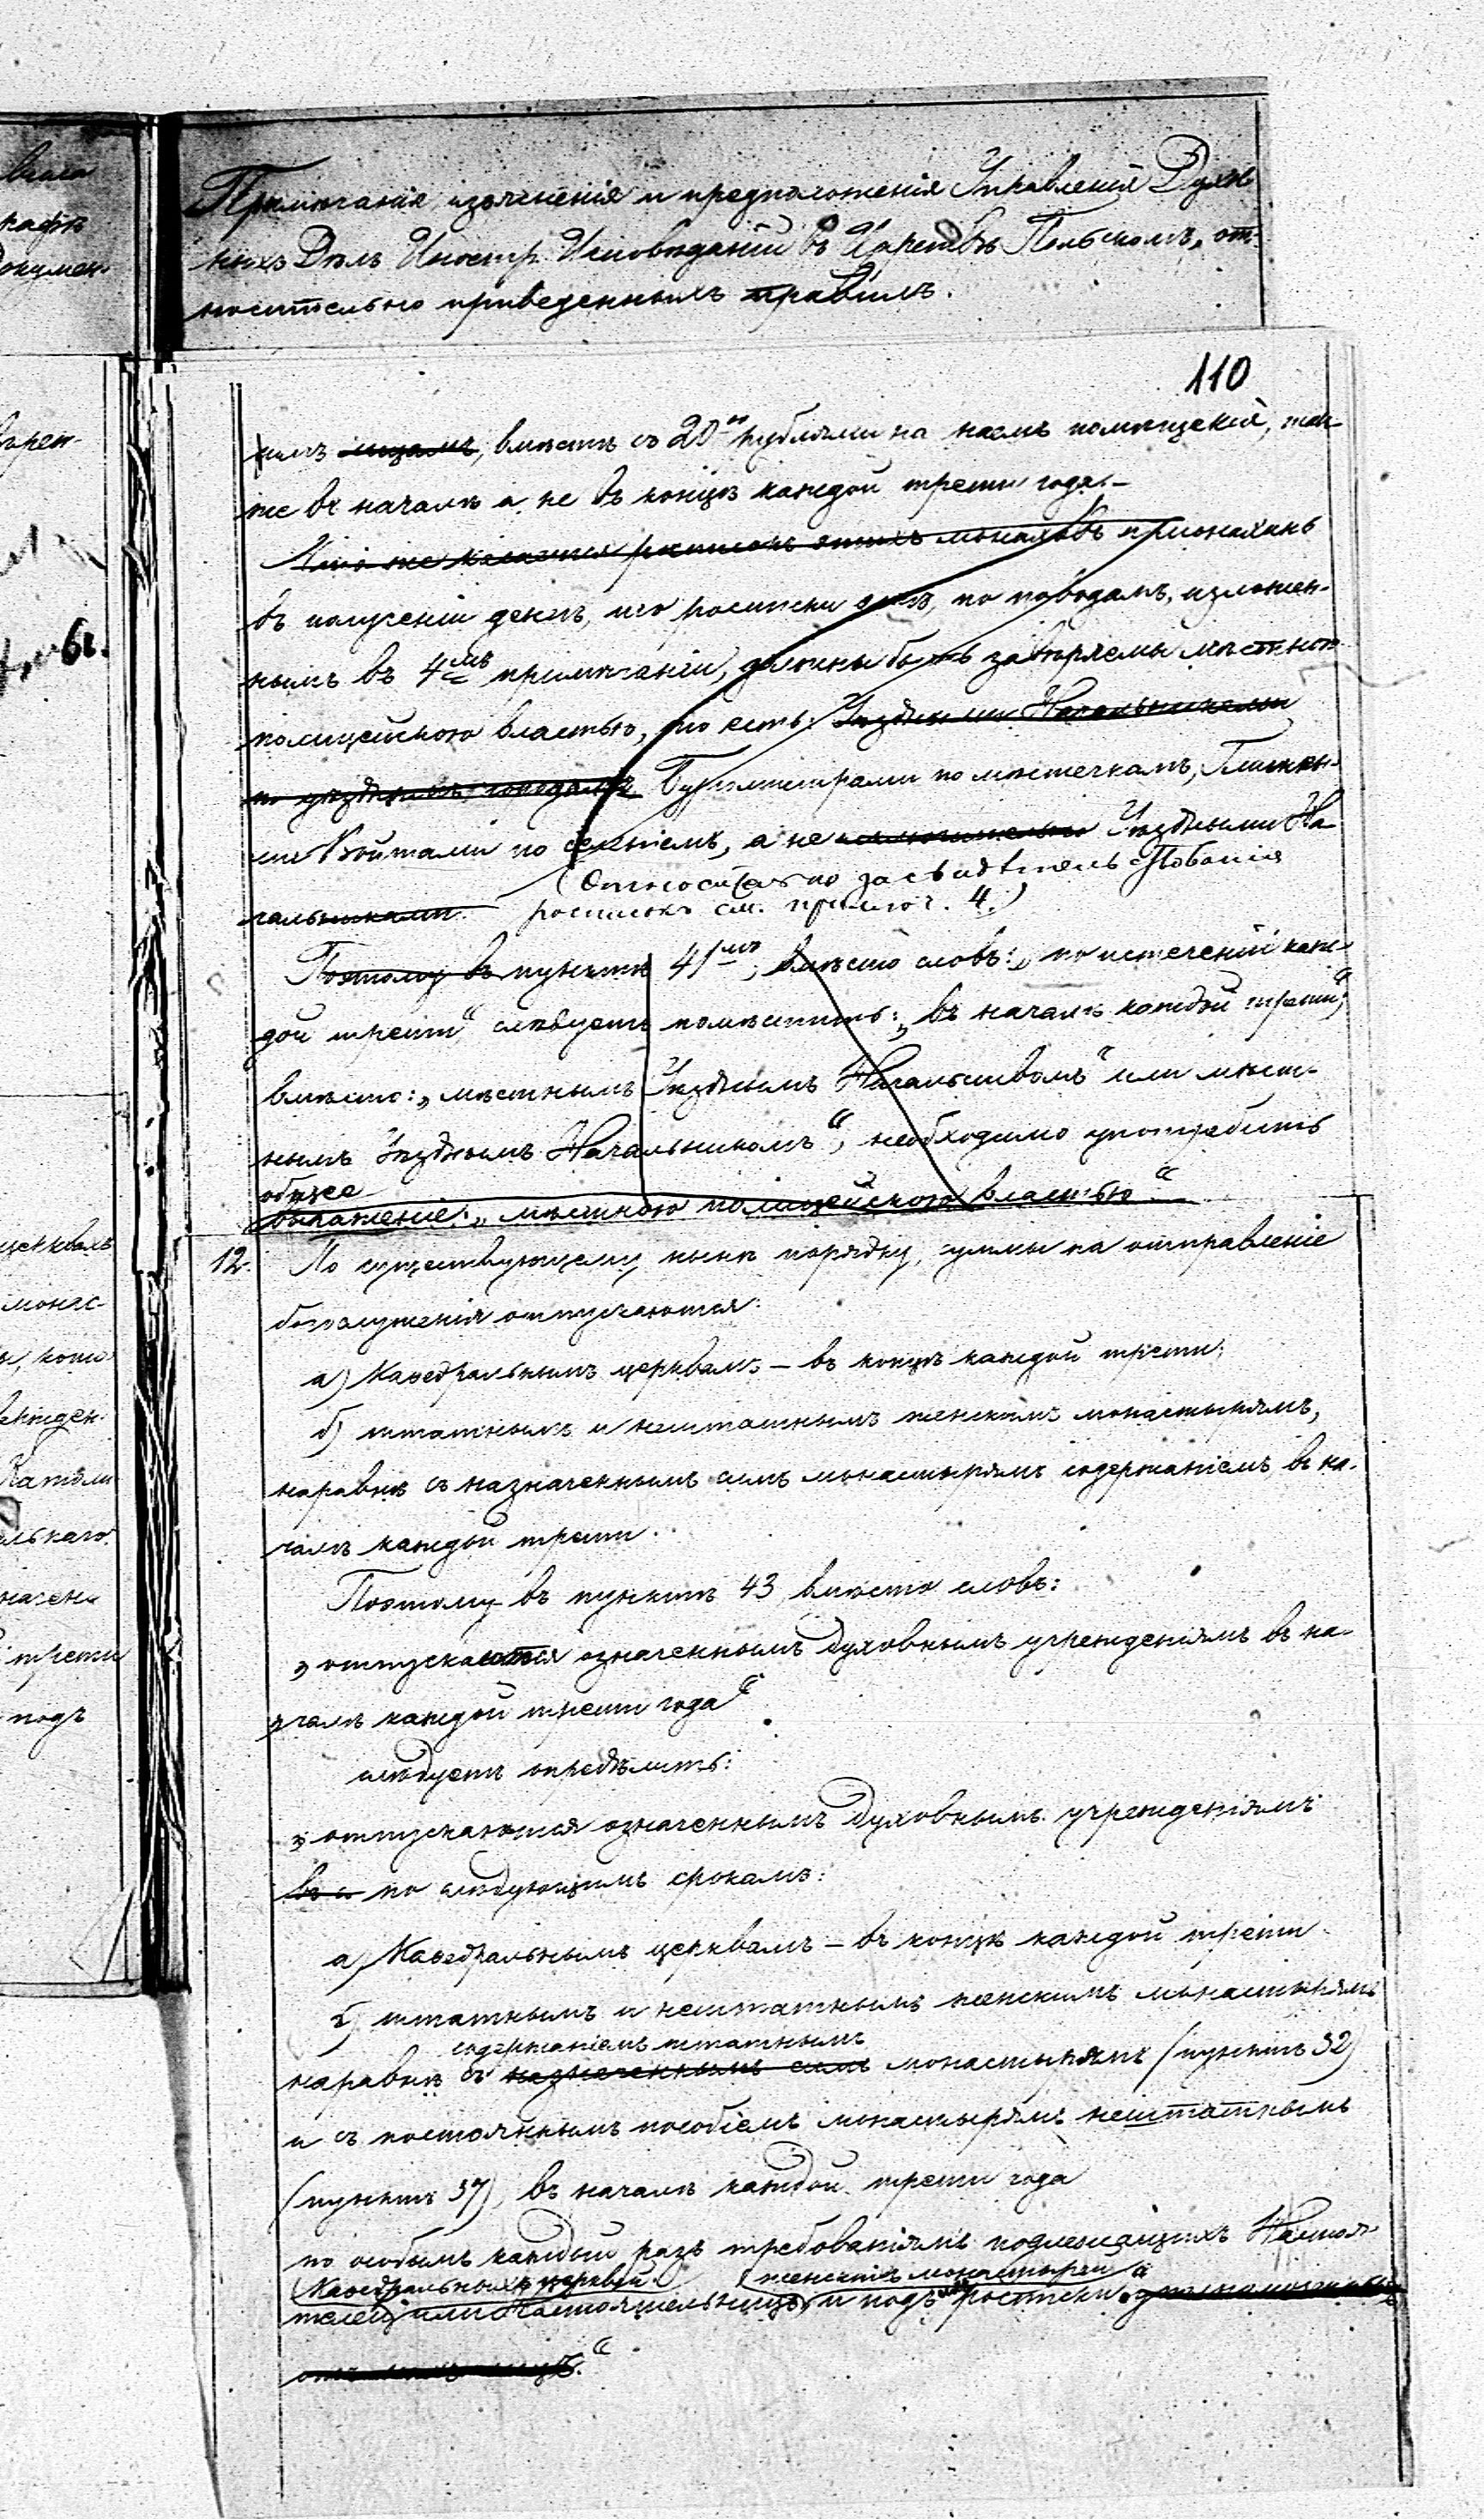 Примѣчанія, изъясненія и предположенія Управленія Духов-
ныхъ Дѣлъ Иностр. Исповѣданій въ Царствѣ Польскомъ, от-
носительно приведенныхъ правилъ.
110
нымъ лицамъ, вмѣстѣ съ 20ю рублями на наемъ помѣщеній, так-
же въ началѣ а не въ концѣ каждой трети года.—
Что же касается росписокъ этихъ монаховъ и монахинь
въ полученіи денегъ, то росписки эти, по поводамъ, изложен-
нымъ въ 4мъ примѣчаніи, должны быть завѣряемы мѣстною
полицейскою властью, то есть: Уѣздными Начальниками
по уѣзднымъ городамъ, Бургомистрами по мѣстечкамъ, Гминны-
ми Войтами по селеніямъ, а не исключительно Уѣздными На-
(Относительно засвидѣтельствованія
чальниками. росписокъ см. примѣч. 4.)
Поэтому въ пунктѣ 41мъ, вмѣсто словъ: „по истеченіи каж-
дой трети“ слѣдуетъ помѣстить: „въ началѣ каждой трети“,
вмѣсто: „мѣстнымъ Уѣзднымъ Начальствомъ“ или мѣст-
нымъ Уѣзднымъ Начальникомъ“, необходимо употребить
общее
выраженіе: „мѣстною полицейскою властью“
12. По существующему нынѣ порядку, суммы на отправленіе
богослуженія отпускаются:
а) Каѳедральнымъ церквамъ — въ концѣ каждой трети;
б) штатнымъ и нештатнымъ женскимъ монастырямъ,
наравнѣ съ назначеннымъ симъ монастырямъ содержаніемъ въ на-
чалѣ каждой трети.
Поэтому въ пунктѣ 43 вмѣсто словъ:
„отпускаются означеннымъ духовнымъ учрежденіямъ въ на-
„чалѣ каждой трети года“
слѣдуетъ опредѣлить:
„отпускаются означеннымъ Духовнымъ учрежденіямъ
въ с по слѣдующимъ срокамъ:
а) Каѳедральнымъ церквамъ — въ концѣ каждой трети
б) штатнымъ и нештатнымъ женскимъ монастырямъ
содержаніемъ штатнымъ
наравнѣ съ назначеннымъ симъ монастырямъ (пунктъ 32)
и съ постояннымъ пособіемъ монастырямъ нештатнымъ
(пунктъ 37), въ началѣ каждой трети года
по особымъ каждый разъ требованіямъ подлежащихъ Настоя-
Каѳедральныхъ церквей женскихъ монастырей
телей или Настоятельницъ, и подъ ихъ росписки